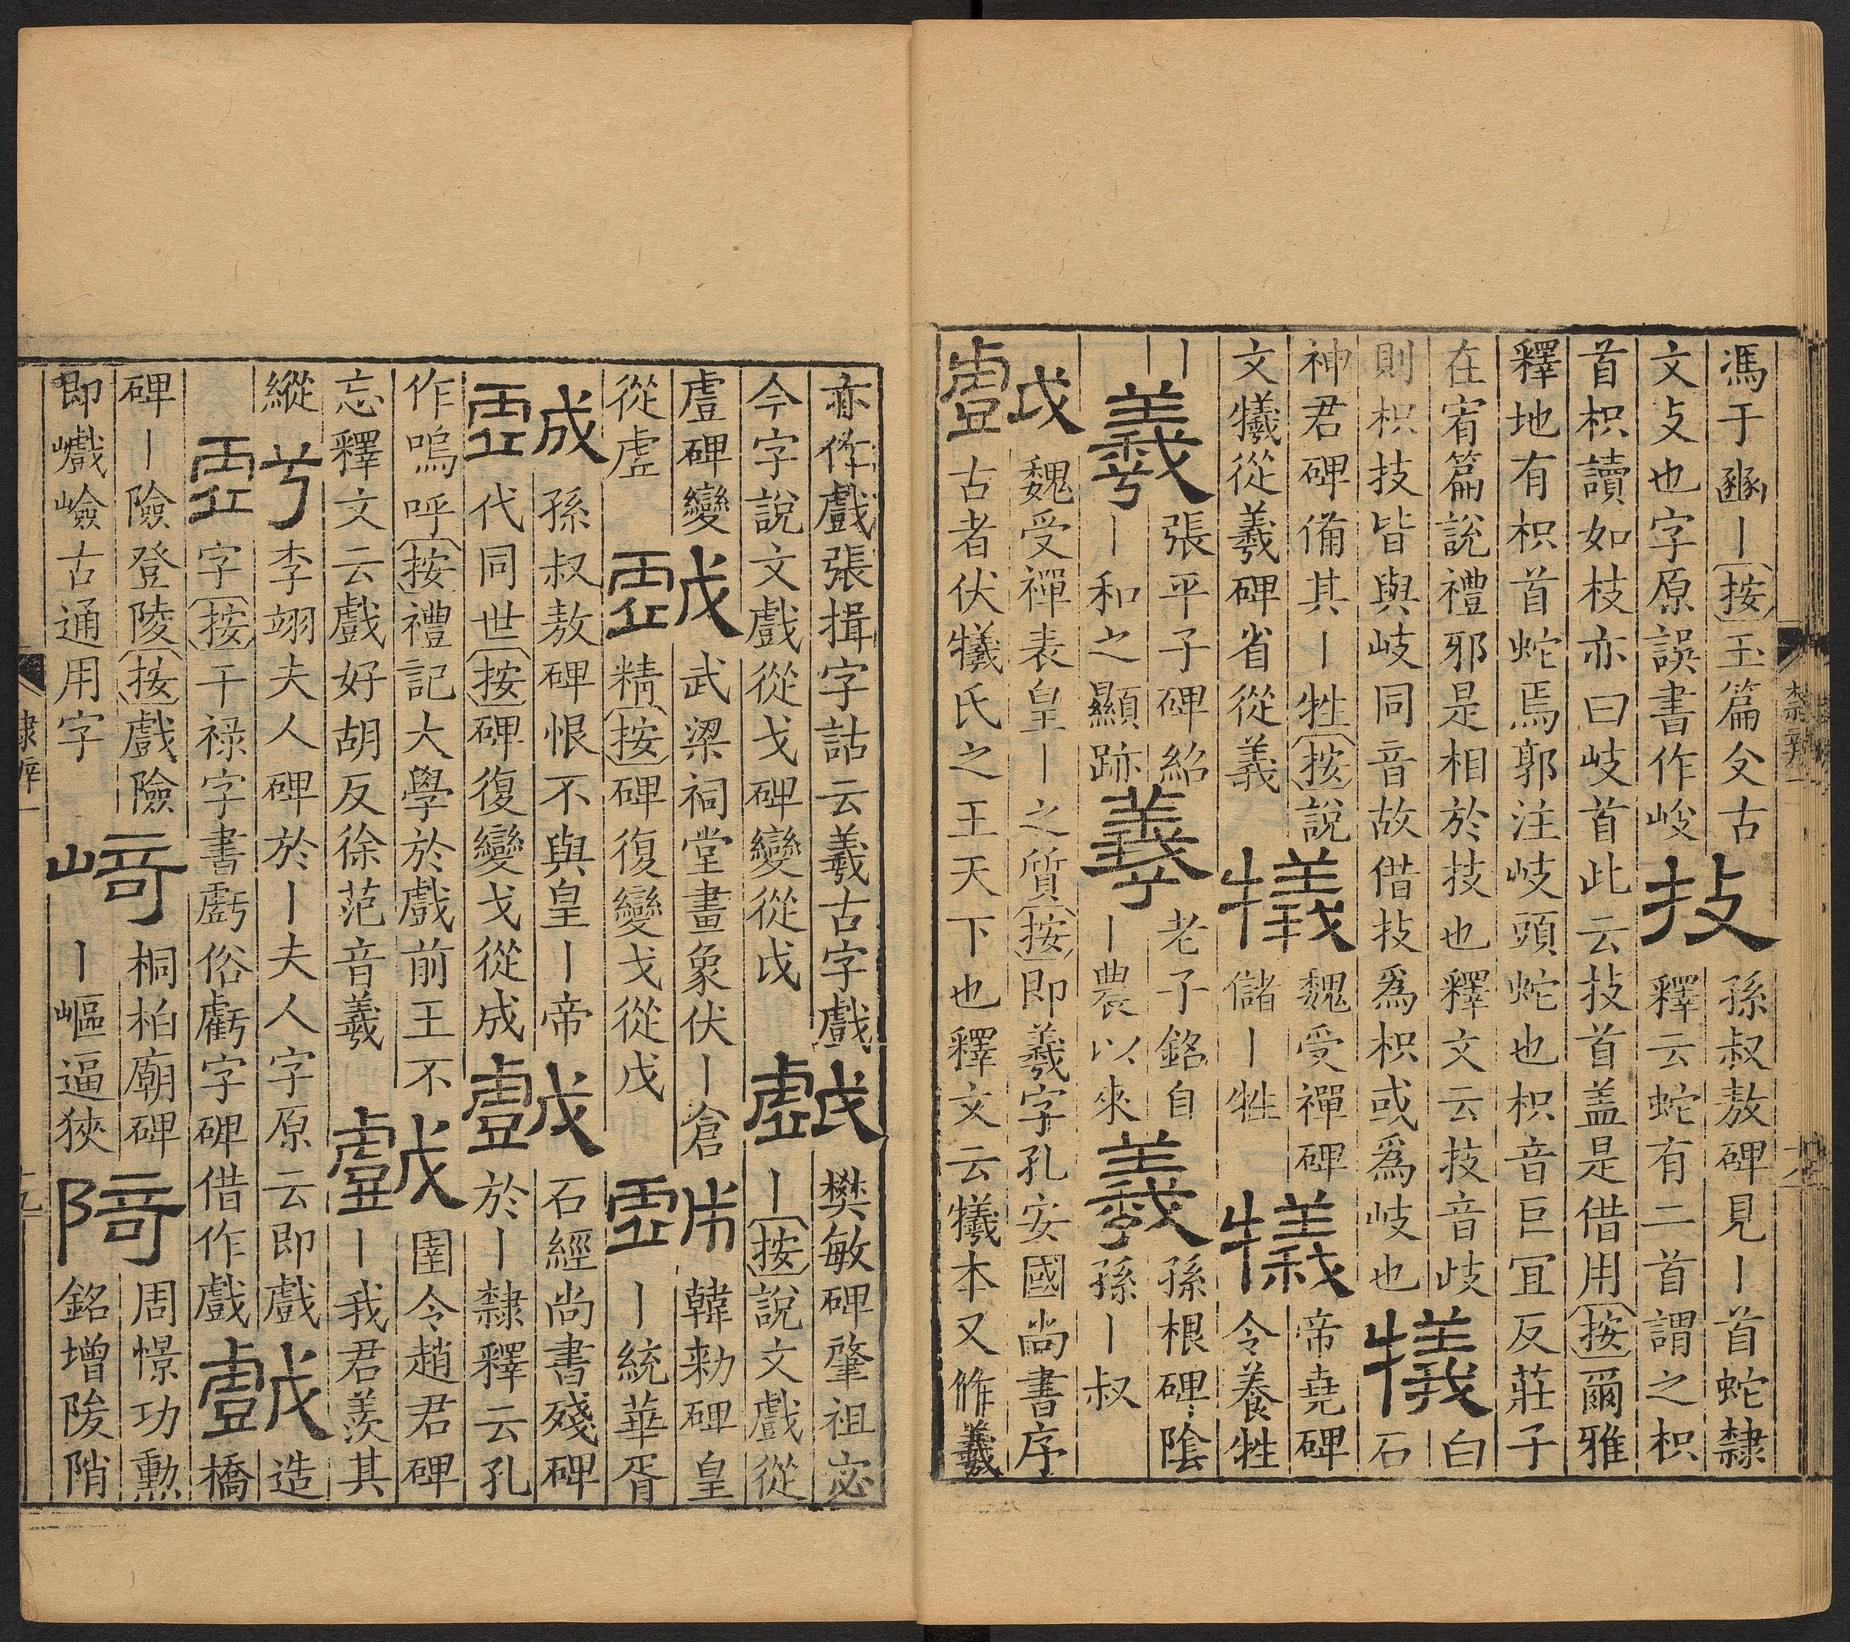 馮于豳〡按玉篇攴古
文攴也字原誤書作峻
技
孫叔敖碑見〡首蛇隸
釋云蛇有二首謂之枳
首枳讀如枝亦曰岐首此云技首盖是借用按爾雅
釋地有枳首蛇焉郭注岐頭蛇也枳音巨宜反莊子
在宥篇說禮邪是相於技也釋文云技音歧
則枳技皆與岐同音故借技爲枳或爲岐也
犧
白
石
神君碑備其〡牲按說
文犧從羲碑省從義
犧
魏受禪碑
儲〡牲
犧
帝堯碑
令養牲
〡
羲
張平子碑紹
〡和之顯跡
羲
老子銘自
〡農以來
羲
孫根碑陰
孫〡叔
戲
魏受禪表皇〡之質按即羲字孔安國尚書序
古者伏犧氏之王天下也釋文云犧本又作羲
亦作戲張揖字詁云羲古字戲
今字說文戲從戈碑變從戉
戲
樊敏碑肇祖宓
〡按說文戲從
䖒碑變
從虛
戲
武梁祠堂畫象伏〡倉
精按碑復變戈從戊
戲
韓勑碑皇
〡統華胥
戲
孫叔敖碑恨不與皇〡帝
代同世按碑復變戈從成
戲
石經尚書殘碑
於〡隸釋云孔
作嗚呼按禮記大學於戲前王不
忘釋文云戲好胡反徐范音羲
戲
圉令趙君碑
〡我君羨其
縱
虧
李翊夫人碑於〡夫人字原云即戲
字按干祿字書虧俗虧字碑借作戲
戲
造
橋
碑〡險登陵按戲險
即巇嶮古通用字
崎
桐柏廟碑
〡嶇逼狹
陭
周憬功勳
銘增陖陗